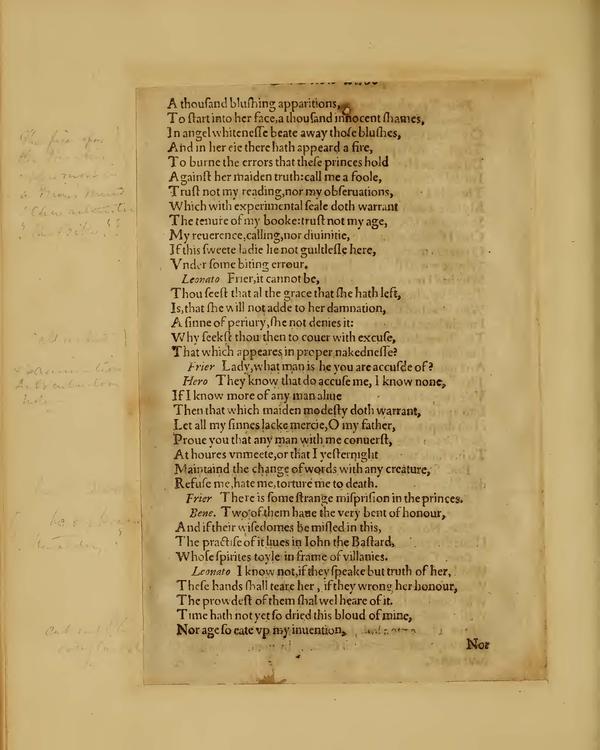 A thouſand bluſhing apparitions,
To ſtart into her face,a thouſand innocent ſhames,
In angel whiteneſſe beate away thoſe bluſhes,
And in her eie there hath appeard a fire,
To burne the errors that theſe princes hold
Againſt her maiden truth:call me a foole,
Truſt not my reading,nor my obſeruations,
Which with experimental ſeale doth warrant
The tenure of my booke:truſt not my age,
My reuerence,calling,nor diuinitie,
If this ſweete ladie lie not guiltleſſe here,
Vnder ſome biting errour.
Leonato Frier,it cannot be,
Thou ſeeſt that al the grace that ſhe hath left,
Is,that ſhe will not adde to her damnation,
A ſinne of periury,ſhe not denies it:
Why ſeekſt thou then to couer with excuſe,
That which appeares in proper nakedneſſe?
Frier Lady,what man is he you are accuſde of?
Hero They know that do accuſe me, I know none,
If I know more of any man aliue
Then that which maiden modeſty doth warrant,
Let all my ſinnes lacke mercie,O my father,
Proue you that any man with me conuerſt,
At houres vnmeete,or that I yeſternight
Maintaind the change of words with any creature,
Refuſe me,hate me,torture me to death.
Frier There is ſome ſtrange miſpriſion in the princes.
Bene. Two of them haue the very bent of honour,
And if their wiſedomes be miſled in this,
The practiſe of it liues in Iohn the Baſtard,
Whoſe ſpirites toyle in frame of villanies.
Leonato I know not,if they ſpeake but truth of her,
Theſe hands ſhall teare her , if they wrong her honour,
The prowdeſt of them ſhal wel heare of it.
Time hath not yet ſo dried this bloud of mine,
Nor age ſo eate vp my inuention,
Nor